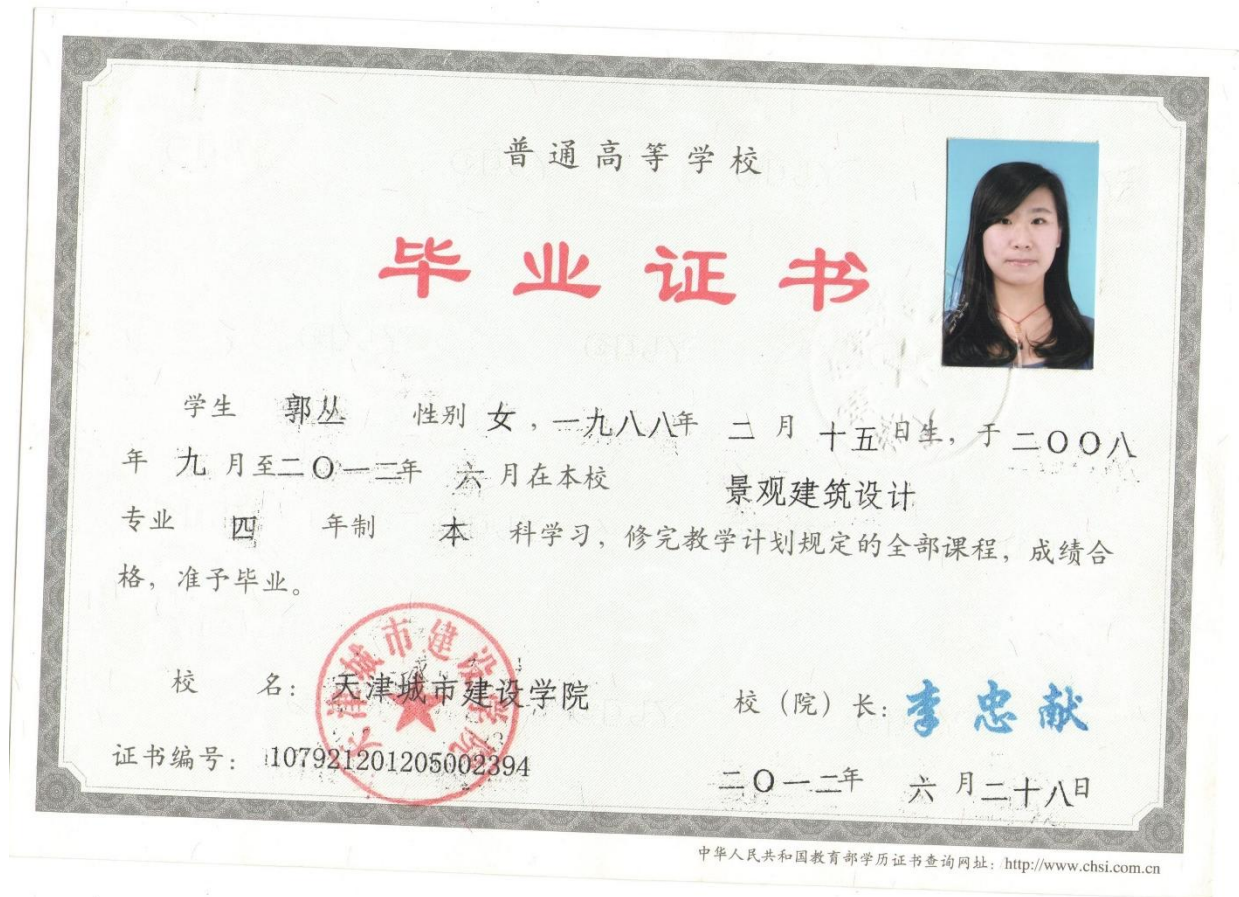 普通高等学校
毕业证书
学生 郭丛 性别 女，一九八八年 二 月 十五 日生，于 二〇〇八
年 九 月至二〇一二年 六 月在本校 景观建筑设计
专业 四 年制 本 科学习，修完教学计划规定的全部课程，成绩合
格，准予毕业。
校 名：天津城市建设学院
天津城市建设学院
校（院）长：李忠献
证书编号：107921201205002394
二〇一二年 六 月二十八日
中华人民共和国教育部学历证书查询网址：http://www.chsi.com.cn